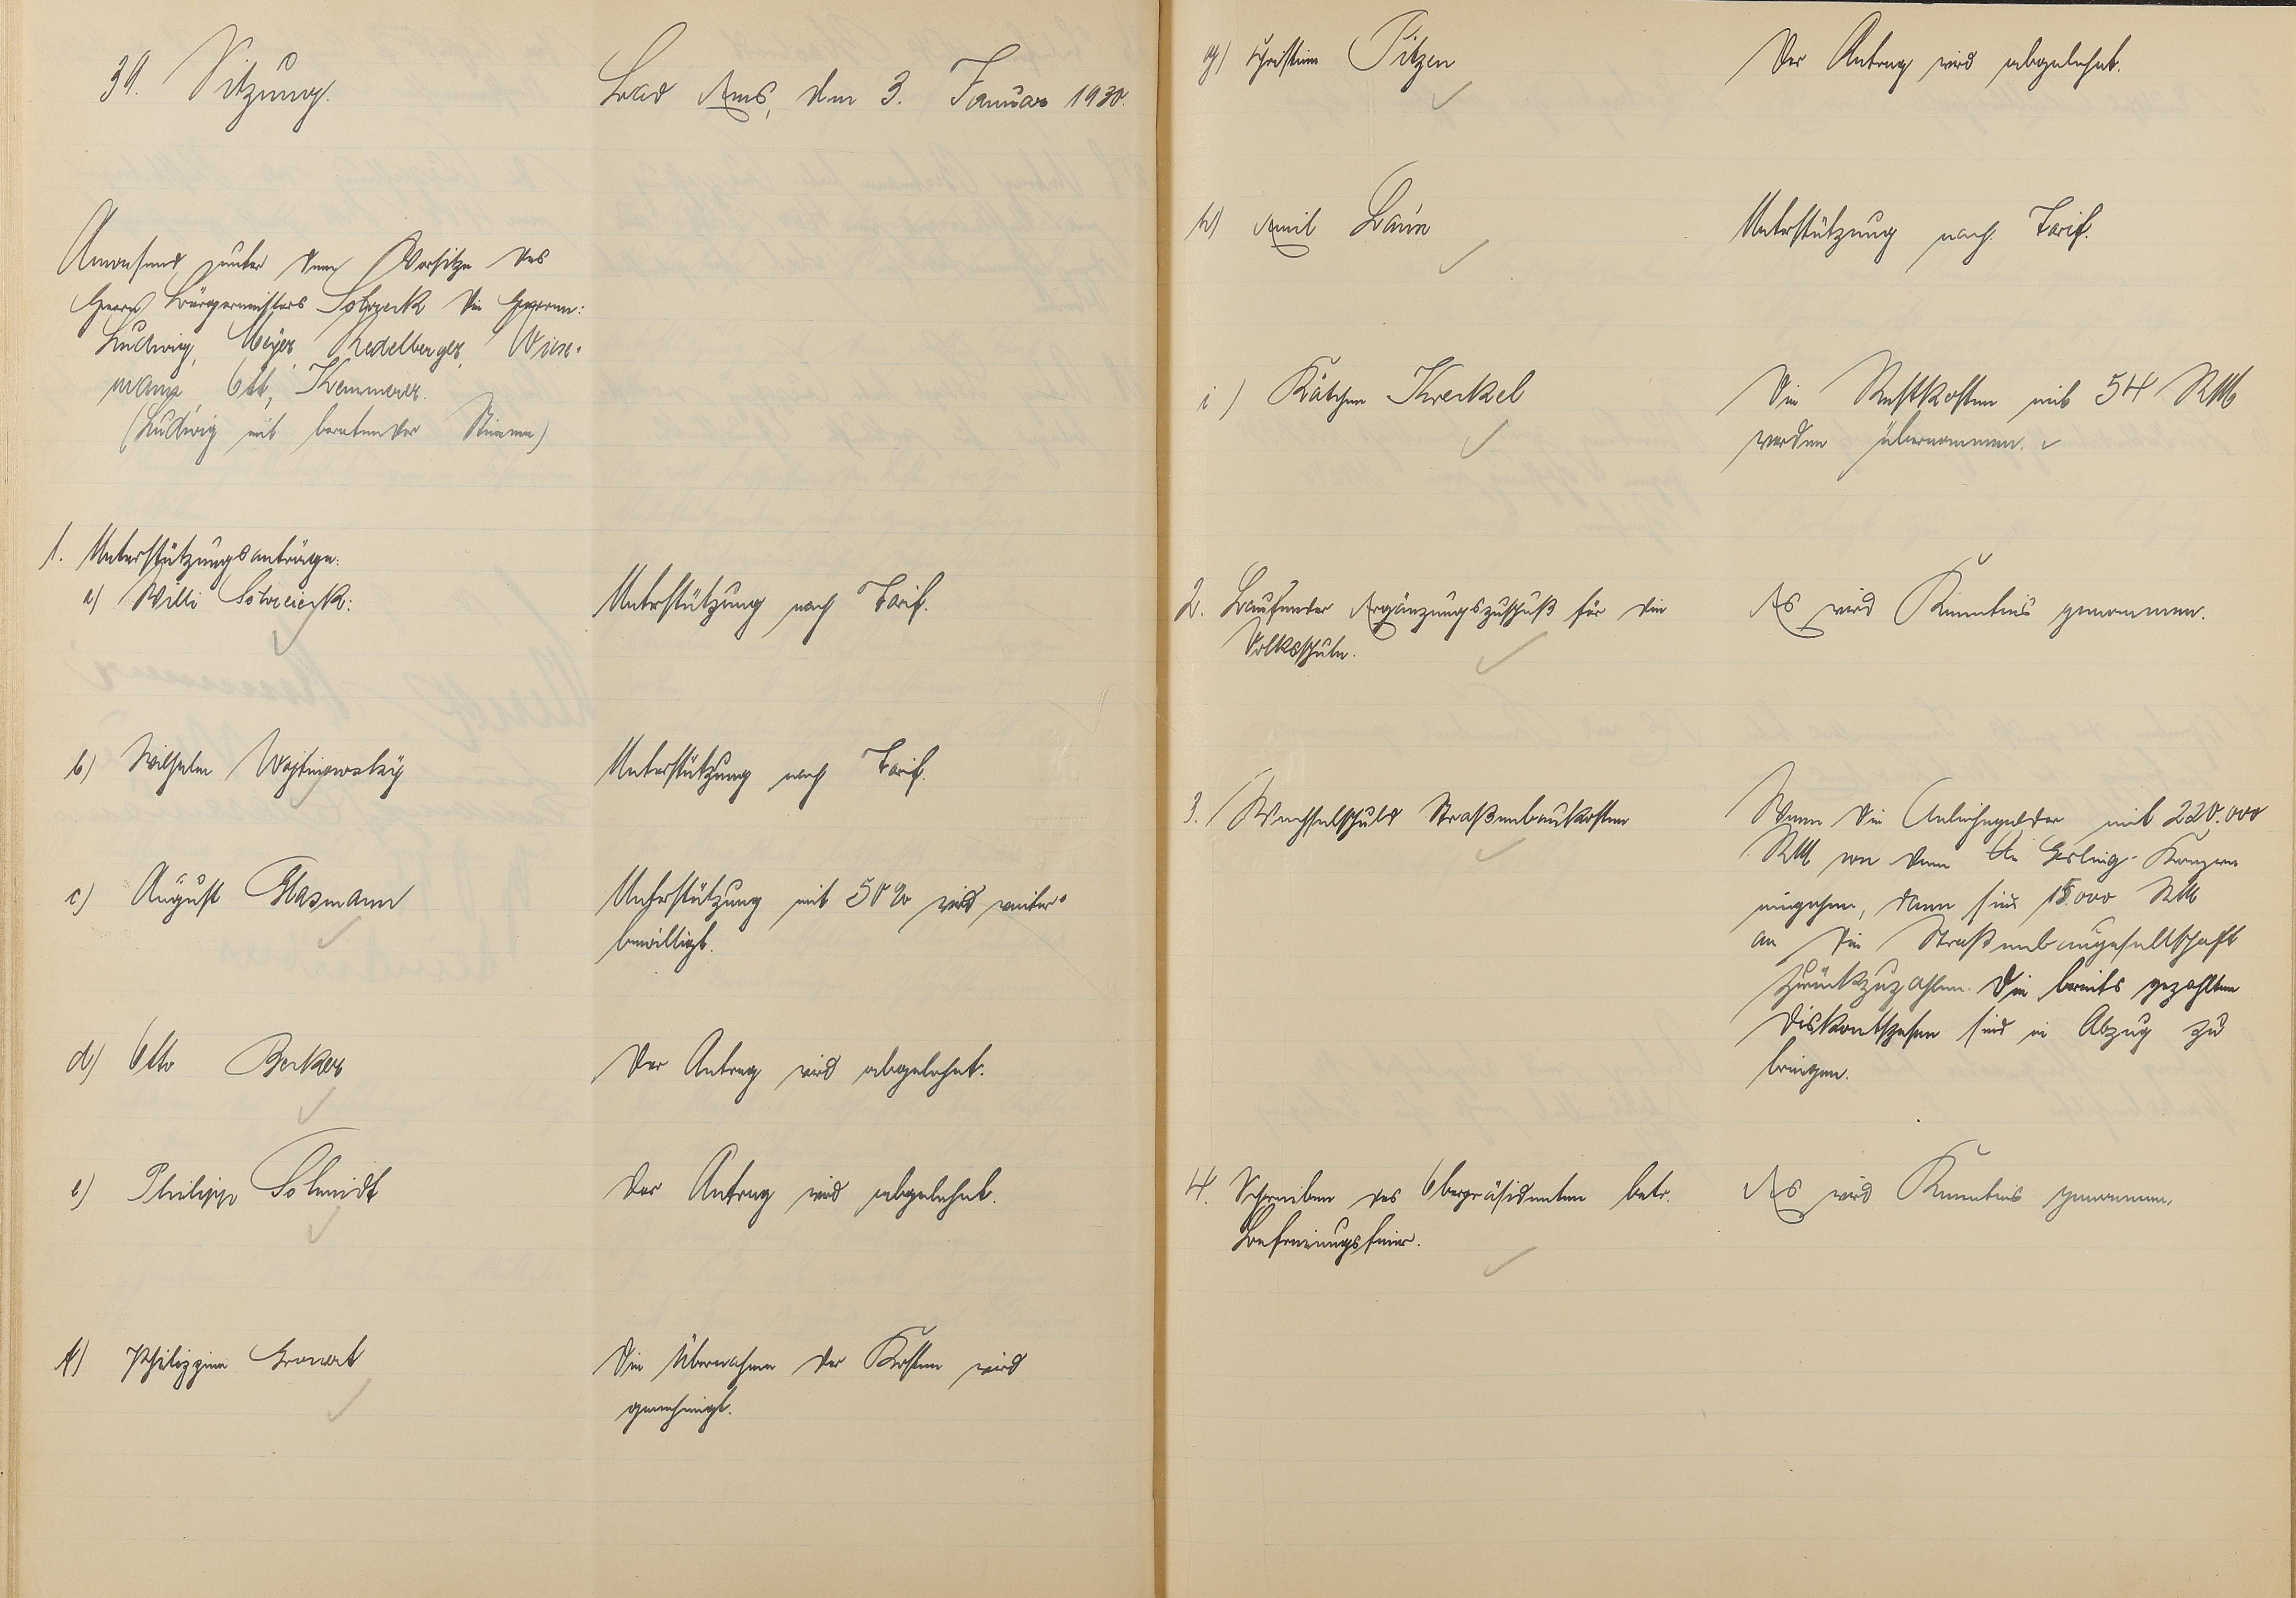 39. Sitzung.
Bad Ems, den 3. Januar 1930.
Anwesend unter dem Vorsitze des
Herrn Bürgermeisters Schreck die Herren:
Ludwig, Meyer, Redelberger, Wise-
mann, Ott, Kemmerer.
(Ludwig mit beratender Stimme)
1. Unterstützungsanträge:
a) Willi Schreieck:
Unterstützung nach Tarif.
b) Wilhelm Wojtinowsky
Unterstützung nach Tarif.
c) August Glasmann
Unterstützung mit 50% wird weiter-
bewilligt.
d) Otto Becker
Der Antrag wird abgelehnt.
e) Philipp Schmidt
Der Antrag wird abgelehnt.
f) Philippine Gronert
Die Übernahme der Kosten wird
genehmigt.
g) Christine Pitzen
Der Antrag wird abgelehnt.
h) Emil Baum
Unterstützung nach Tarif.
i) Kätchen Kreckel
Die Restkosten mit 54 RM
werden übernommen.
2. Laufender Ergänzungszuschuß für die
Volksschule.
Es wird Kenntnis genommen.
3. Wechselschuld Straßenbaukosten
Wenn die Anleihegelder mit 220.000
RM von dem Gerling-Konzern
eingehen, dann sind 15.000 RM
an die Straßenbaugesellschaft
zurückzuzahlen. Die bereits gezahlten
Diskontspesen sind in Abzug zu
bringen.
4. Schreiben des Oberpräsidenten betr.
Befreiungsfeier.
Es wird Kenntnis genommen.